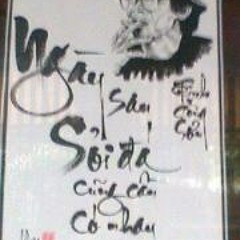 Ngày
sau
Sỏi đá
cũng cần
có nhau
Trịnh
Công
Sơn